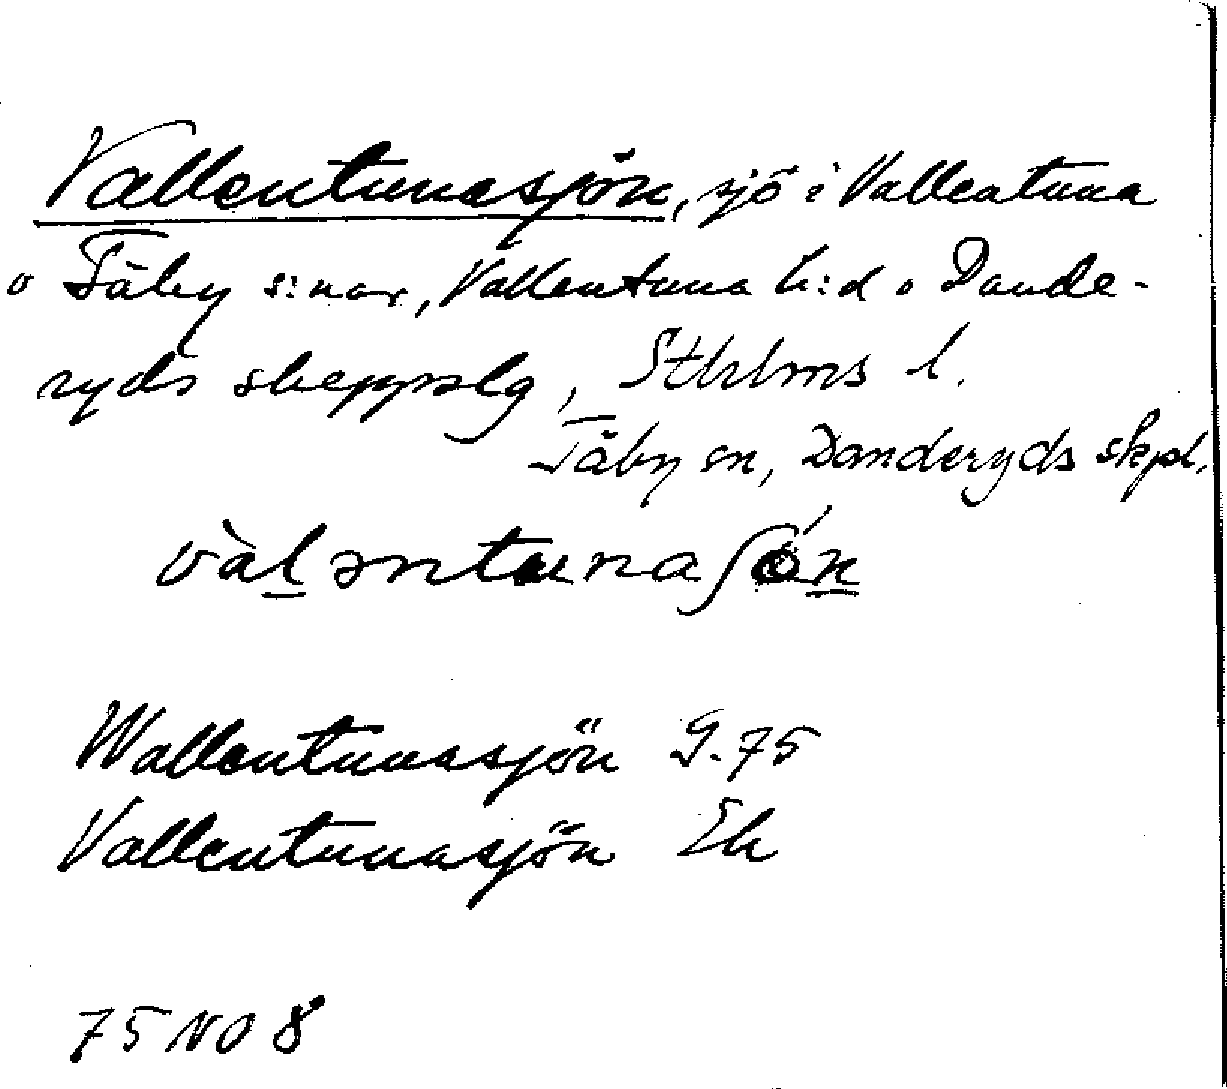 Vallentunasjön, sjö i Vallentuna
o Täby s:nar, Vallentuna h:d o Dande-
ryds skeppslg, Sthlms l.
Täby sn, Danderyds skpl.
vàl̲əntunaʃón̲
Wallentunasjön G.75
Vallentunasjön Ek
75 NO 8